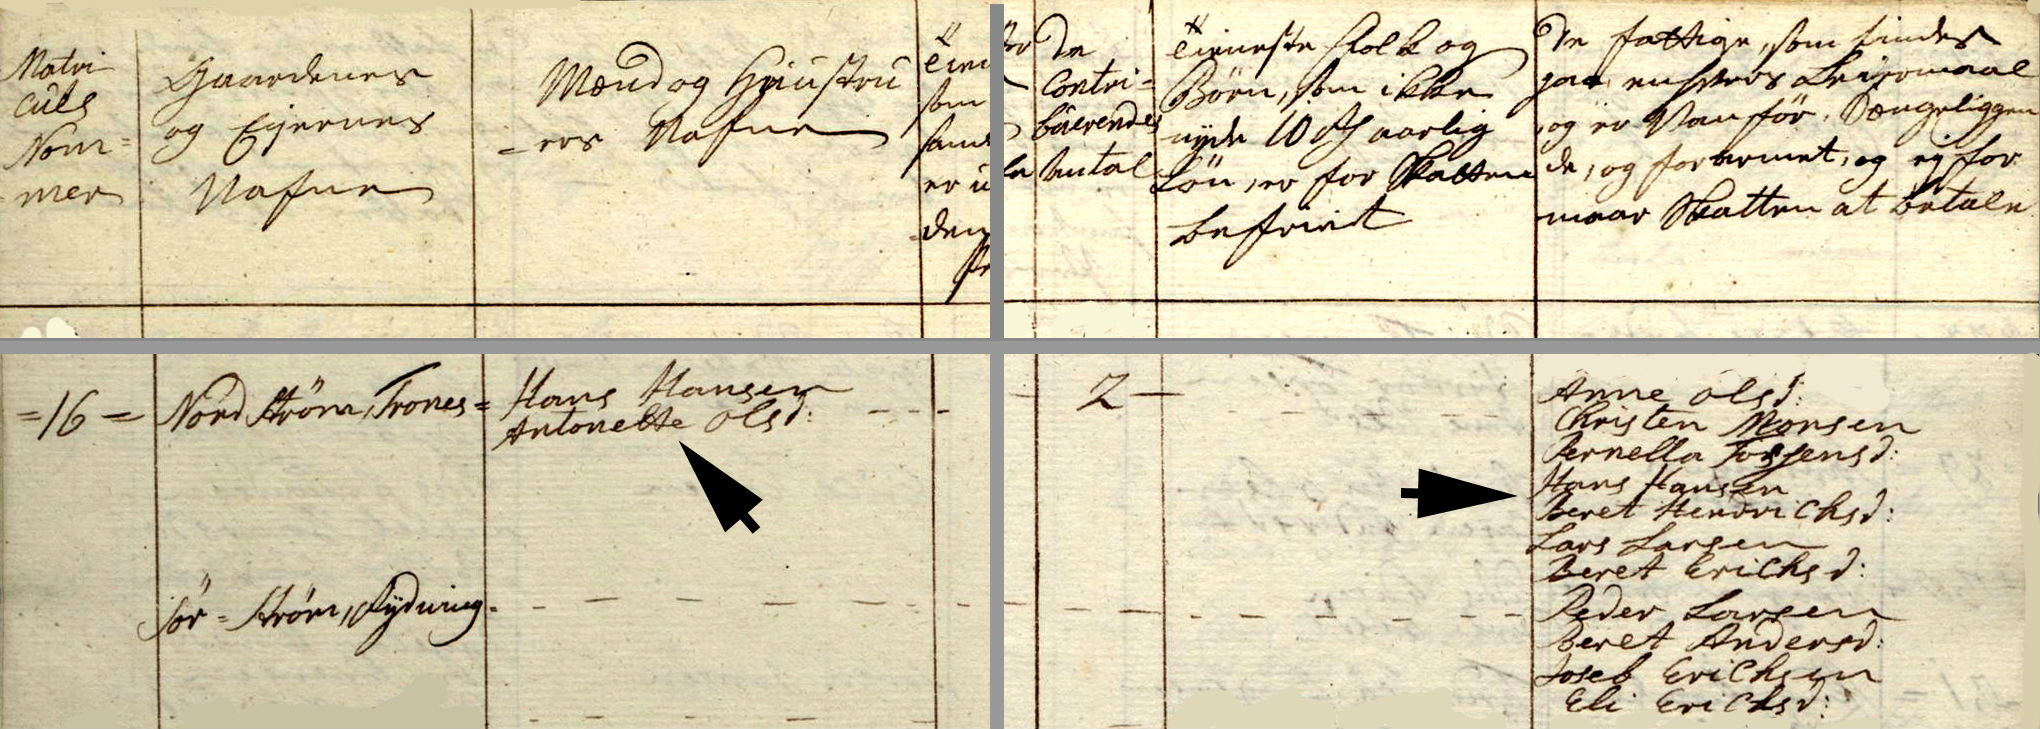 Matri
culs
Nom=
mer
Gaardenes
og Ejernes
Nafne
Mænd og Hustru
=ers Nafne
som
er u
den
De
Contri=
buerendes
Antal
Tieneste Folk og
Börn, som ikke
nyde 10 rdr aarlig
Lön, er for Skatten
befriet
De fattige, som findes
og er Vanför, Sængeliggen
de, og forarmet, og ej for
maar Skatten at betale
=16=
Nord Ström, Trones=
Hans Hansen
Antonette Olsd:
2
Anne Olsd:
Christen Monsen
Pernella Torgensd:
Hans Hansen
Beret Hendrichsd:
Lars Larsen
Beret Erichsd:
Sör=Ström, Rydning
Peder Larsen
Beret Andersd:
Joseb Erichsen
Eli Erichsd: